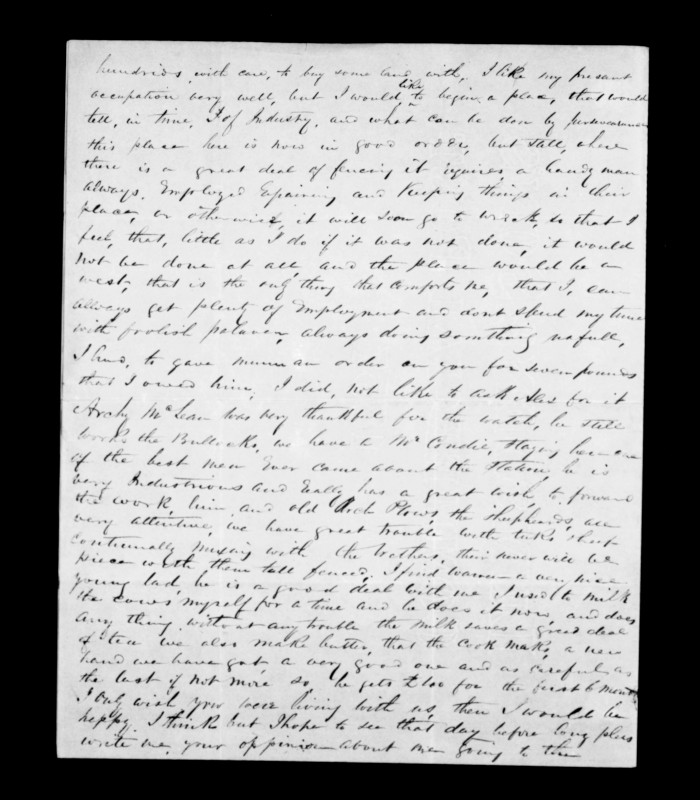 hundrids with care, to buy some land with, I like my presant
occupation very well, but I would like to begin a place, that would
tell, in time, of Industry, and what can be don by perseverance
this place here is now in good order, but still, where
there is a great deal of fencing it requires a handy man
always, Employed Repairing and Keeping things in their
place, or otherwise, it will soon go to wreck, so that I
feel, that, little as I do if it was not done, it would
not be done at all, and the place would be a
west, that is the only thing that comforts me, that I, can
always get plenty of Employment and dont spend my time
with foolish palaver, always doing something usefull,
I had, to gave an order on you for seven pounds
that I owed him, I did, not like to ask Alex for it
Archy McLean was very thankful for the watch, he still
works the Bullocks, we have a Mc Condie, staying here one
of the best men Ever came about the station, he is
very Industrious and Really has a great wish, to forward
the work, him and old Arch Plows, the shepherds, are
very attentive, we have great trouble with sheep
continually mixing with the brothers, their never will be
piece with them till fenced, I find a very nice
young lad, he is a good deal with me I used to milk
the cows myself for a time and he does it now, and does
any thing without any trouble the milk saves a great deal
of tea we also make butter, that the cook makes, a new
hand we have got, a very good one and as careful as
the last if not more so he gets for the first 6 months
I only wish you were living with us, then I would be
happy. I think but I hope to see that day before long pleas
write me, your oppinion about me going to the